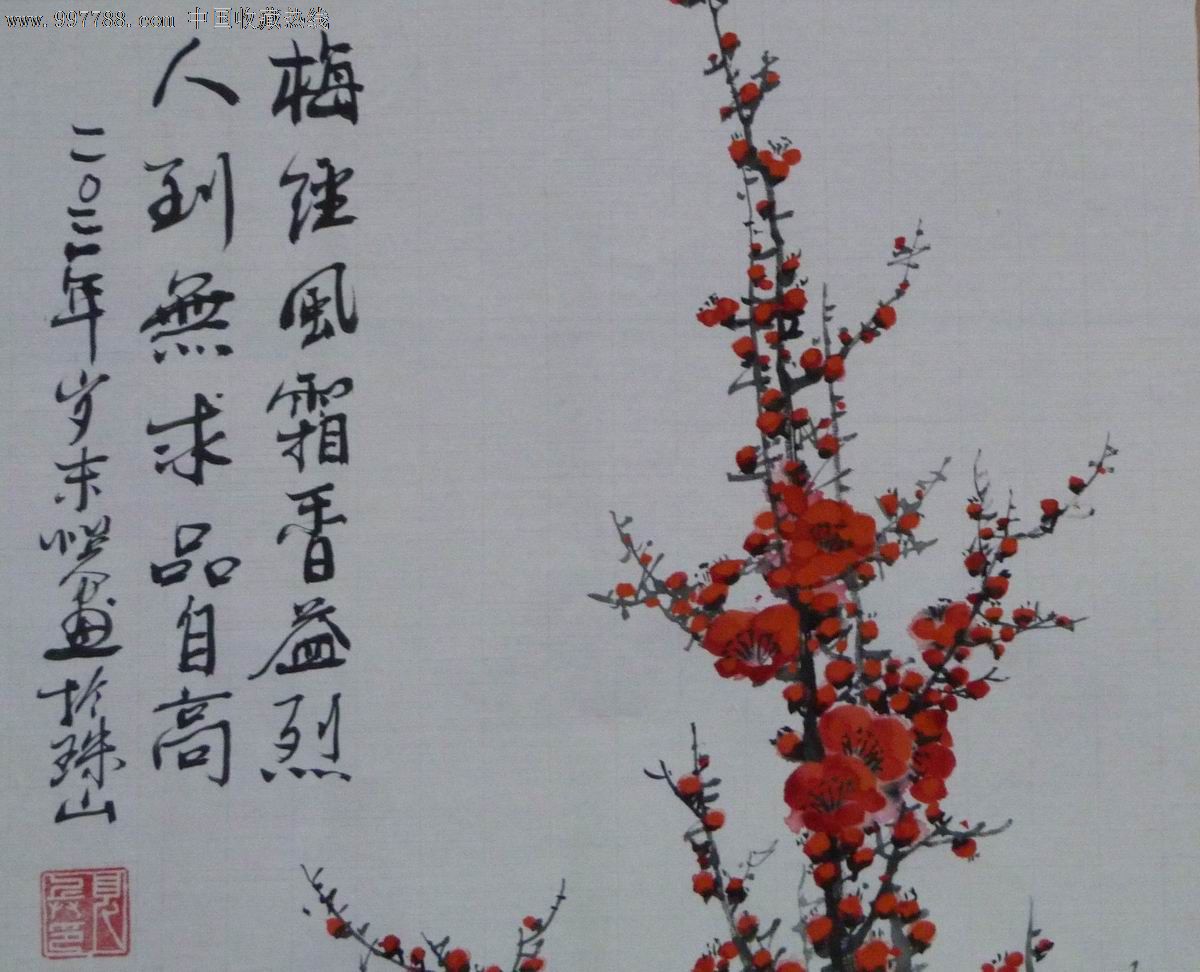 www.997788.com 中国收藏热线
梅经风霜香益烈
人到無求品自高
二〇一一年岁末 画於珠山